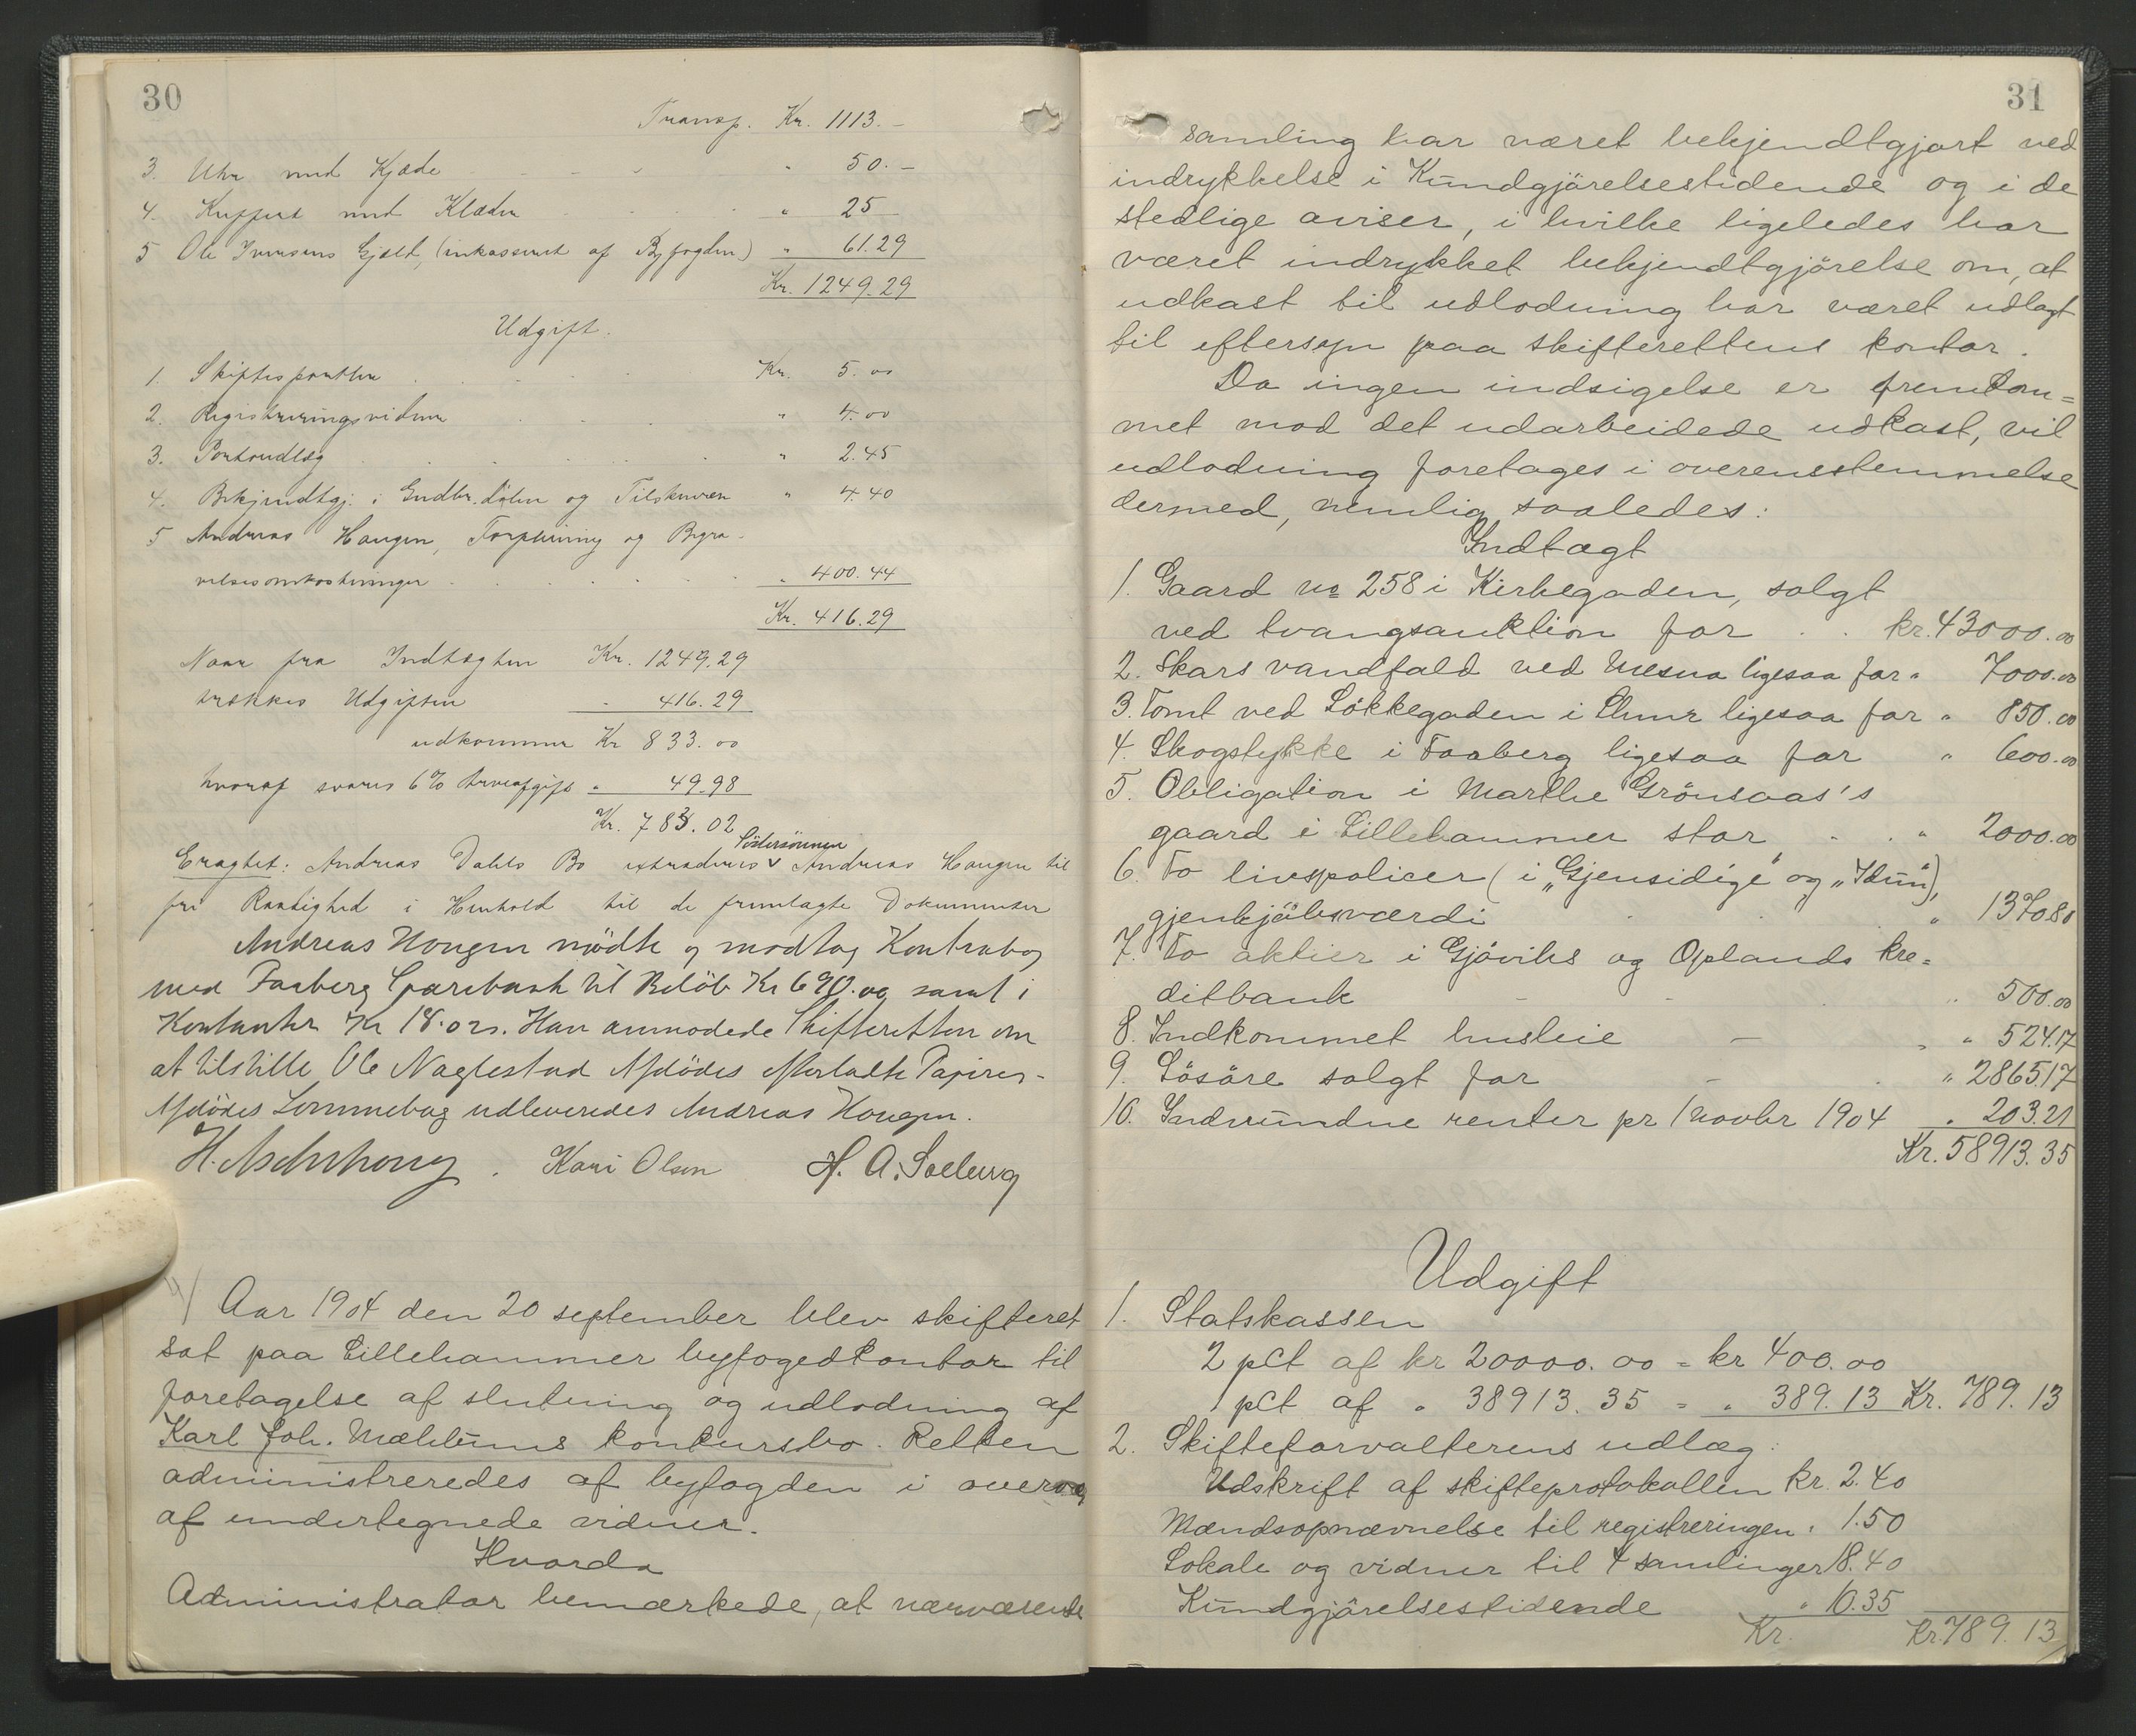 30
Transp. Kr. 1113. –
3. Uhr med Kjæde " 50. –
4. Kuffert med Klæder " 25
5 Ole Iversens Gjæld, (inkasseret af Byfogden) " 61.29
Kr. 1249.29
Udgift.
1. Skifteportalen Kr. 5.00
2. Registreringsvidner " 4.00
3. Portoudlæg " 2.45
4. Bekjendtgj. i Gudbr.dølen og Tilskueren " 4.40
5 Andreas Haugen, Forpleining og Begra-
velsesomkostninger " 400.44
Kr. 416.29
Naar fra Indtægten Kr. 1249.29
trækkes Udgiften " 416.29
udkommer Kr 833.00
hvoraf svares 6% Arveafgift " 49.98
Kr. 783.02
Søstersønnen
Eragtet: Andreas Dahls Bo extraderes v Andreas Haugen til
fri Raadighed i Henhold til de fremlagte Dokumenter
Andreas Haugen mødte og modtog Kontrabog
med Faaberg Sparebank til Beløb Kr 690.00 samt i
Kontanter Kr 18.02. Han anmodede Skifteretten om
at tilstille Ole Naglestad Afdødes efterladte Papirer -
Afdødes Lommebog udleveredes Andreas Haugen.
Kari Olsen H. A. Solberg
Aar 1904 den 20 september blev skifteret
sat paa Lillehammer byfogedkontor til
foretagelse af slutning og udlodning af
Karl Joh. Mæhlums konkursbo. Retten
administreredes af byfogden i overvær
af undertegnede vidner.
Hvorda
Administrator bemærkede, at nærværende
31
samling har været bekjendtgjort ved
indrykkelse i Kundgjørelsestidende og i de
stedlige aviser, i hvilke ligeledes har
været indrykket bekjendtgjørelse om, at
udkast til udlodning har været udlagt
til eftersyn paa skifterettens kontor.
Da ingen indsigelse er fremkom=
met mod det udarbeidede udkast, vil
udlodning foretages i overensstemmelse
dermed, nemlig saaledes:
Indtægt
1. Gaard no 258 i Kirkegaden, solgt
ved tvangsauktion for . . kr. 43000.00
2. Skars vandfald ved Mesna ligesaa for " 7000.00
3. Tomt ved Løkkegaden i Lhmr ligesaa for " 850.00
4. Skogstykke i Faaberg ligesaa for " 600.00
5. Obligation i Marthe Grønsaas's
gaard i Lillehammer stor . . " 2000.00
6. To livspolicer (i „Gjensidige" og „Idun"),
gjenkjøbsværdi " 1370.80
7. To aktier i Gjøviks og Oplands kre=
ditbank " 500.00
8. Indkommet husleie – " 524.17
9. Løsøre solgt for – " 2865.17
10. Indvundne renter pr 1 novbr 1904 " 203.21
Kr. 58913.35
Udgift
1. Statskassen
2 pCt af kr 20000.00 = kr 400.00
1 pCt af " 38913.35 = " 389.13 Kr. 789.13
2. Skifteforvalterens udlæg:
Udskrift af skifteprotokollen kr. 2.40
Mændsopnævnelse til registreringen " 1.50
Lokale og vidner til 4 samlinger 18.40
Kundgjørelsestidende " 10.35
Kr. Kr. 789.13